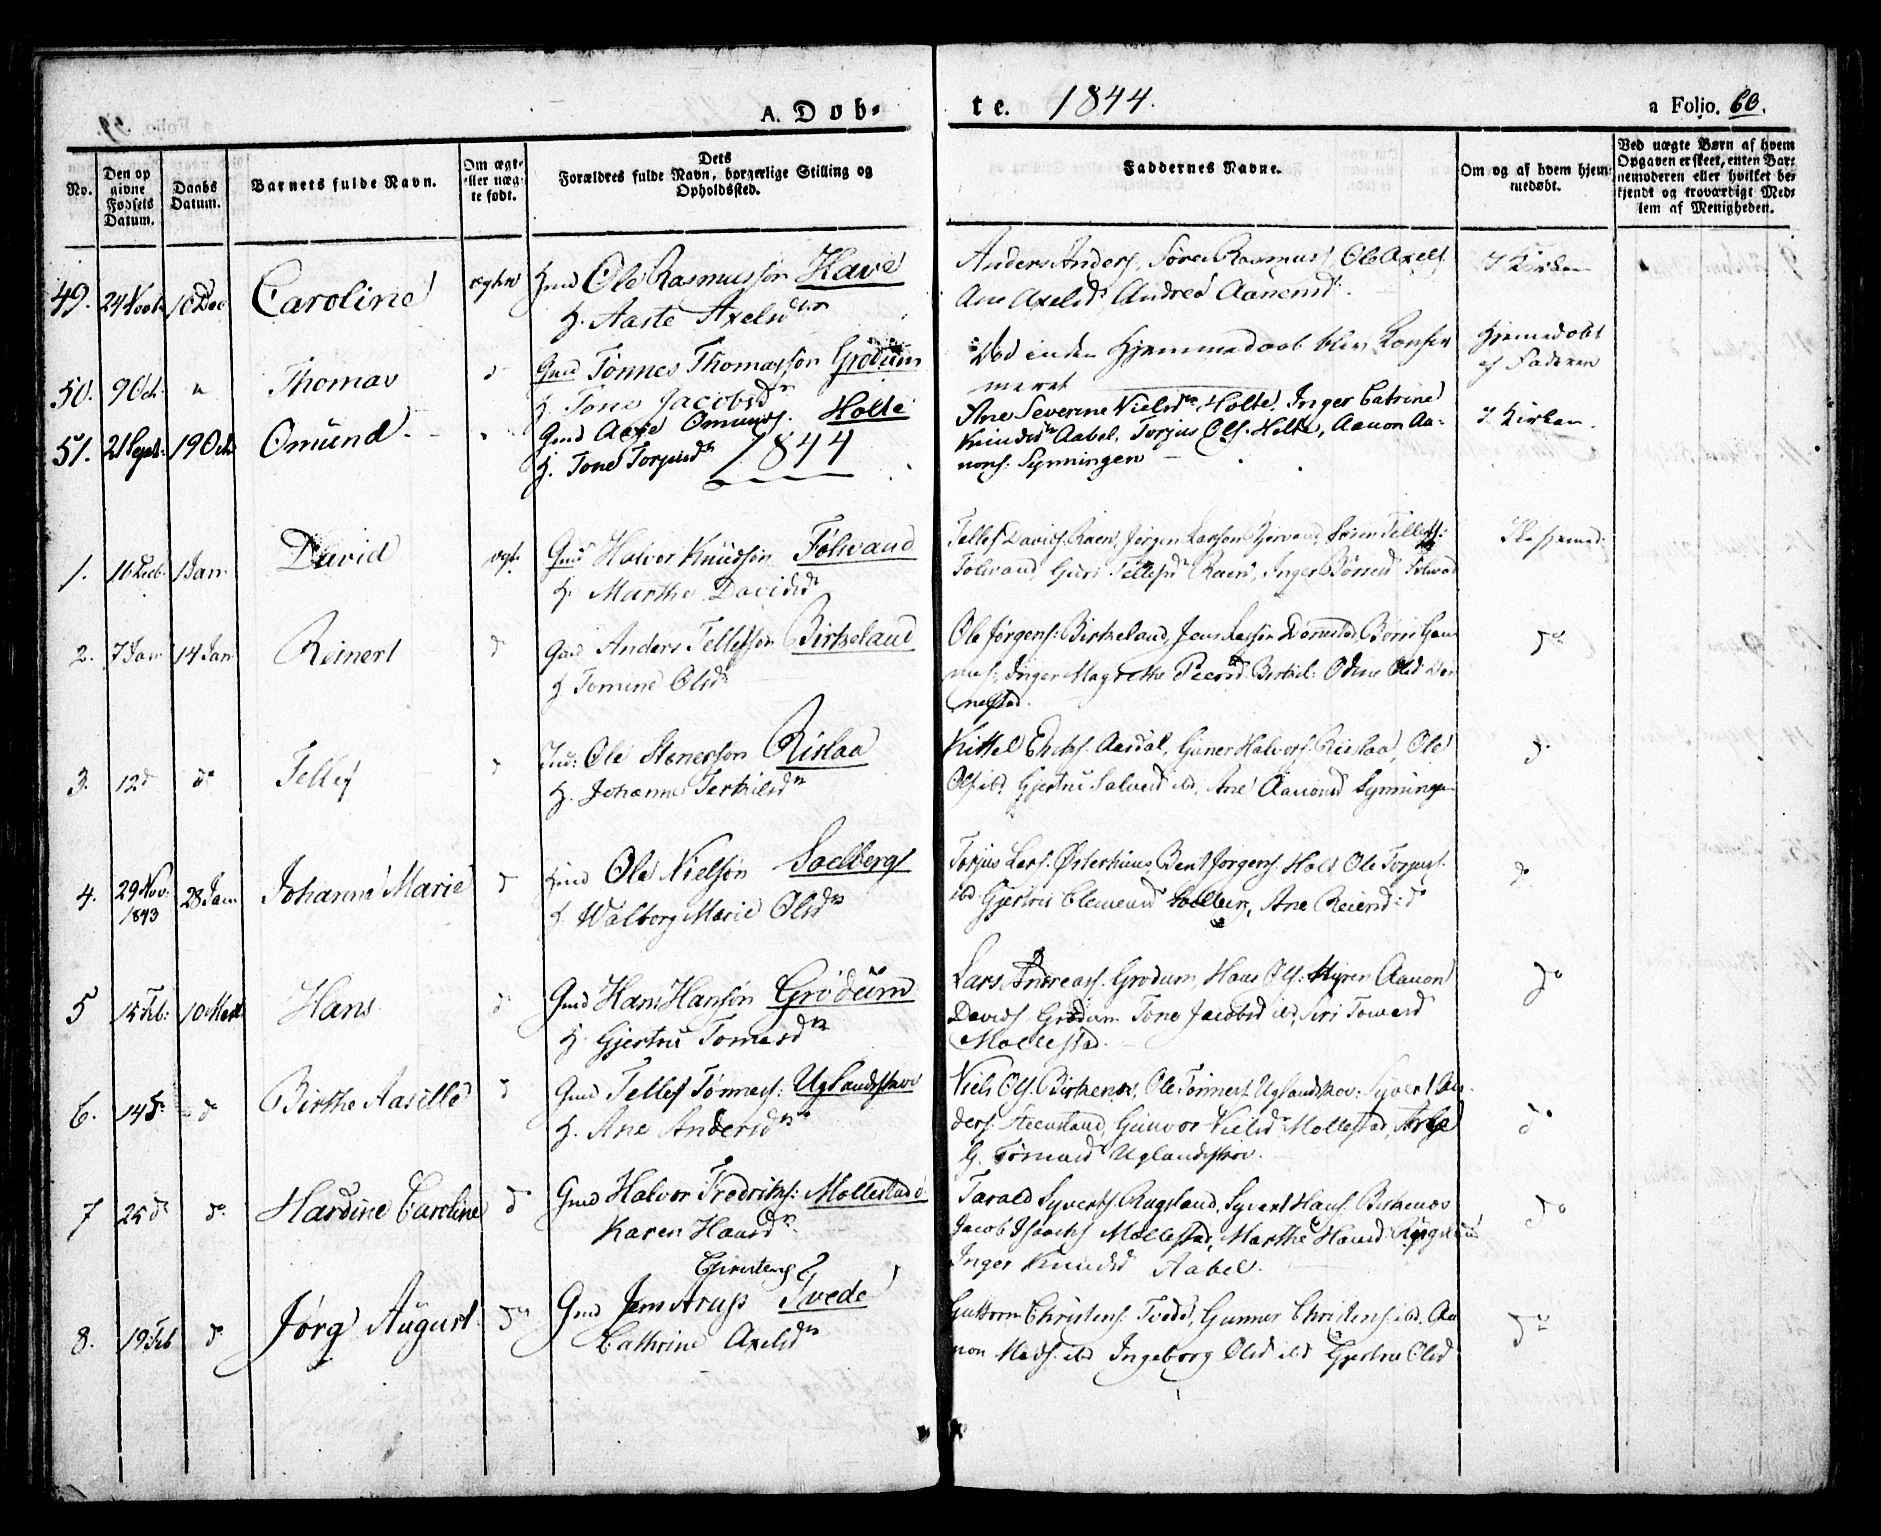 A. Døb-
te. 1844.
a Folio. 60.
No.
Den op
givne
Fødsels
Datum.
Daabs
Datum.
Barnets fulde Navn.
Om ægte
eller uæg-
te født.
Dets
Forældres fulde Navn, borgerlige Stilling og
Opholdssted.
Faddernes Navne.
Om og af hvem hjem-
medøbt.
Ved uægte Børn af hvem
Opgaven er skeet, enten Bar-
nemoderen eller hvilket be-
kjendt og troværdigt Med-
lem af Menigheden.
49. 24 Novb 10 Dec Caroline ægte Gmd Ole Rasmusson Have
H. Aaste Axelsdtr
Anders Anders. Søren Rasmuss. Ole Axels.
Ane Axelsd. Andrea Aanensd.
I Kirken
50. 9 Oct. " Thomas d Gmd Tønnes Thomasson Grødum
H. Tone Jacobsd
Død inden Hjemmedaab blev Konfir
meret
Hjemedøbt
af Faderen
51. 21 Sept. 19 Oct Omund Gmd Omunds. Holte
H. Tone Torjusd
Ane Severine Nielsd Holte, Inger Catrine
Knudsd Aabel, Torjus Ols. Holte, Aanon Aa-
nons. Synningen
I Kirken.
1844
1. 16 Deeb. 1 Jan David ægt. Gmd Halvor Knudson Følvand
H. Marthe Davidsd
Tellef Davids. Raen, Jørgen Larsson Søren Tellefs:
Folvand, Guri Tellefsd Raen, Inger Børresd Folvad
2. 7 Jan 14 Jan Reinert d Gmd Anders Tellefson Birkeland
H. Tomine Olsd
Ole Jørgens: Birkeland, Jens Dømestad,
Inger Magrethe Peersd Birkel: Olsd
nestad.
do
3. 12 d do Tellef d Ole Stenerson Rislaa
H. Johanne Terkilsd
Kittel Aasdal, Guner Halvors. Riislaa, Ole
Ols ibd Gjertru Salvesd ibd, Ane Aanonsd Synningen
d
4. 29 Nov. 28 Jan Johanne Marie d Gmd Ole Nielson Soelberg
1843
H. Walborg Marie Olsd
Torjus Lars. Østerhuus, Bent Jørgens. Holt, Ole Torjus.
ibd Gjertru Clemensd Soelberg, Ane Reiersd do
do
5 15 Feb: 10 Mart Hans d Gmd Hans Hanson Grødum
H. Gjertru Tomesd
Lars Andreass. Grødum, Hans Ols. Myren Aanon
Davids. Grødum Tone Jacobsd ibd, Siri Towesd
Mollestad.
do
6. 14 d. do Birthe Aasille d Gmd Tellef Tønness. Uglandskov
H. Ane Andersd
Niels Ols. Birkenes, Ole Tønness Uglandskov: Syvert An-
ders. Steensland, Gunvor Nielsd Mollestad,
G. Tønnesd Uglandskov.
do
7 25 do do Hardine Caroline d Gmd Halvor Fredriks: Mollestad
Karen Hansd
Tarald Syverts. Rugsland, Syvert Hans. Birkenes
Jacob Isaachs Mollestad, Marthe Hansd
Inger Knudsd Aabel.
do
8. 19 Feb do Jørg August do Gmd Jens Arup Tvede
Christens
Cathrine Axelsd
Guttorm Christens. Tvede, Gunner Christens. ibd, Aa-
non Mads. ibd Ingeborg Olsd ibd Gjertru Olsd
do